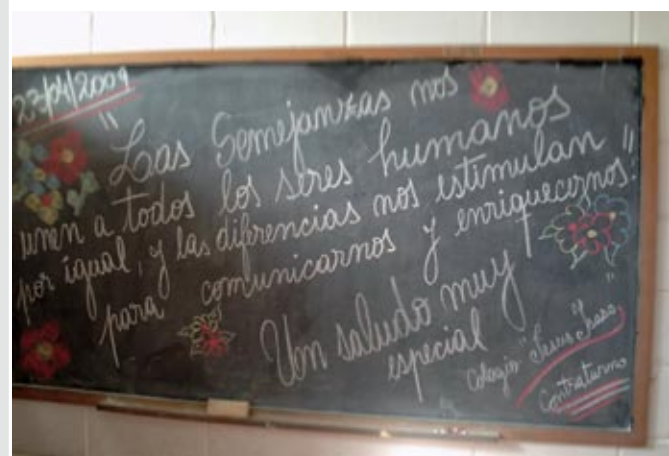 23/4/2009
"Las Semejanzas nos
unen a todos los seres humanos
por igual, y las diferencias nos estimulan
para comunicarnos y enriquecernos."
Un saludo muy
especial
Colegio "Jesus y
Contraturno